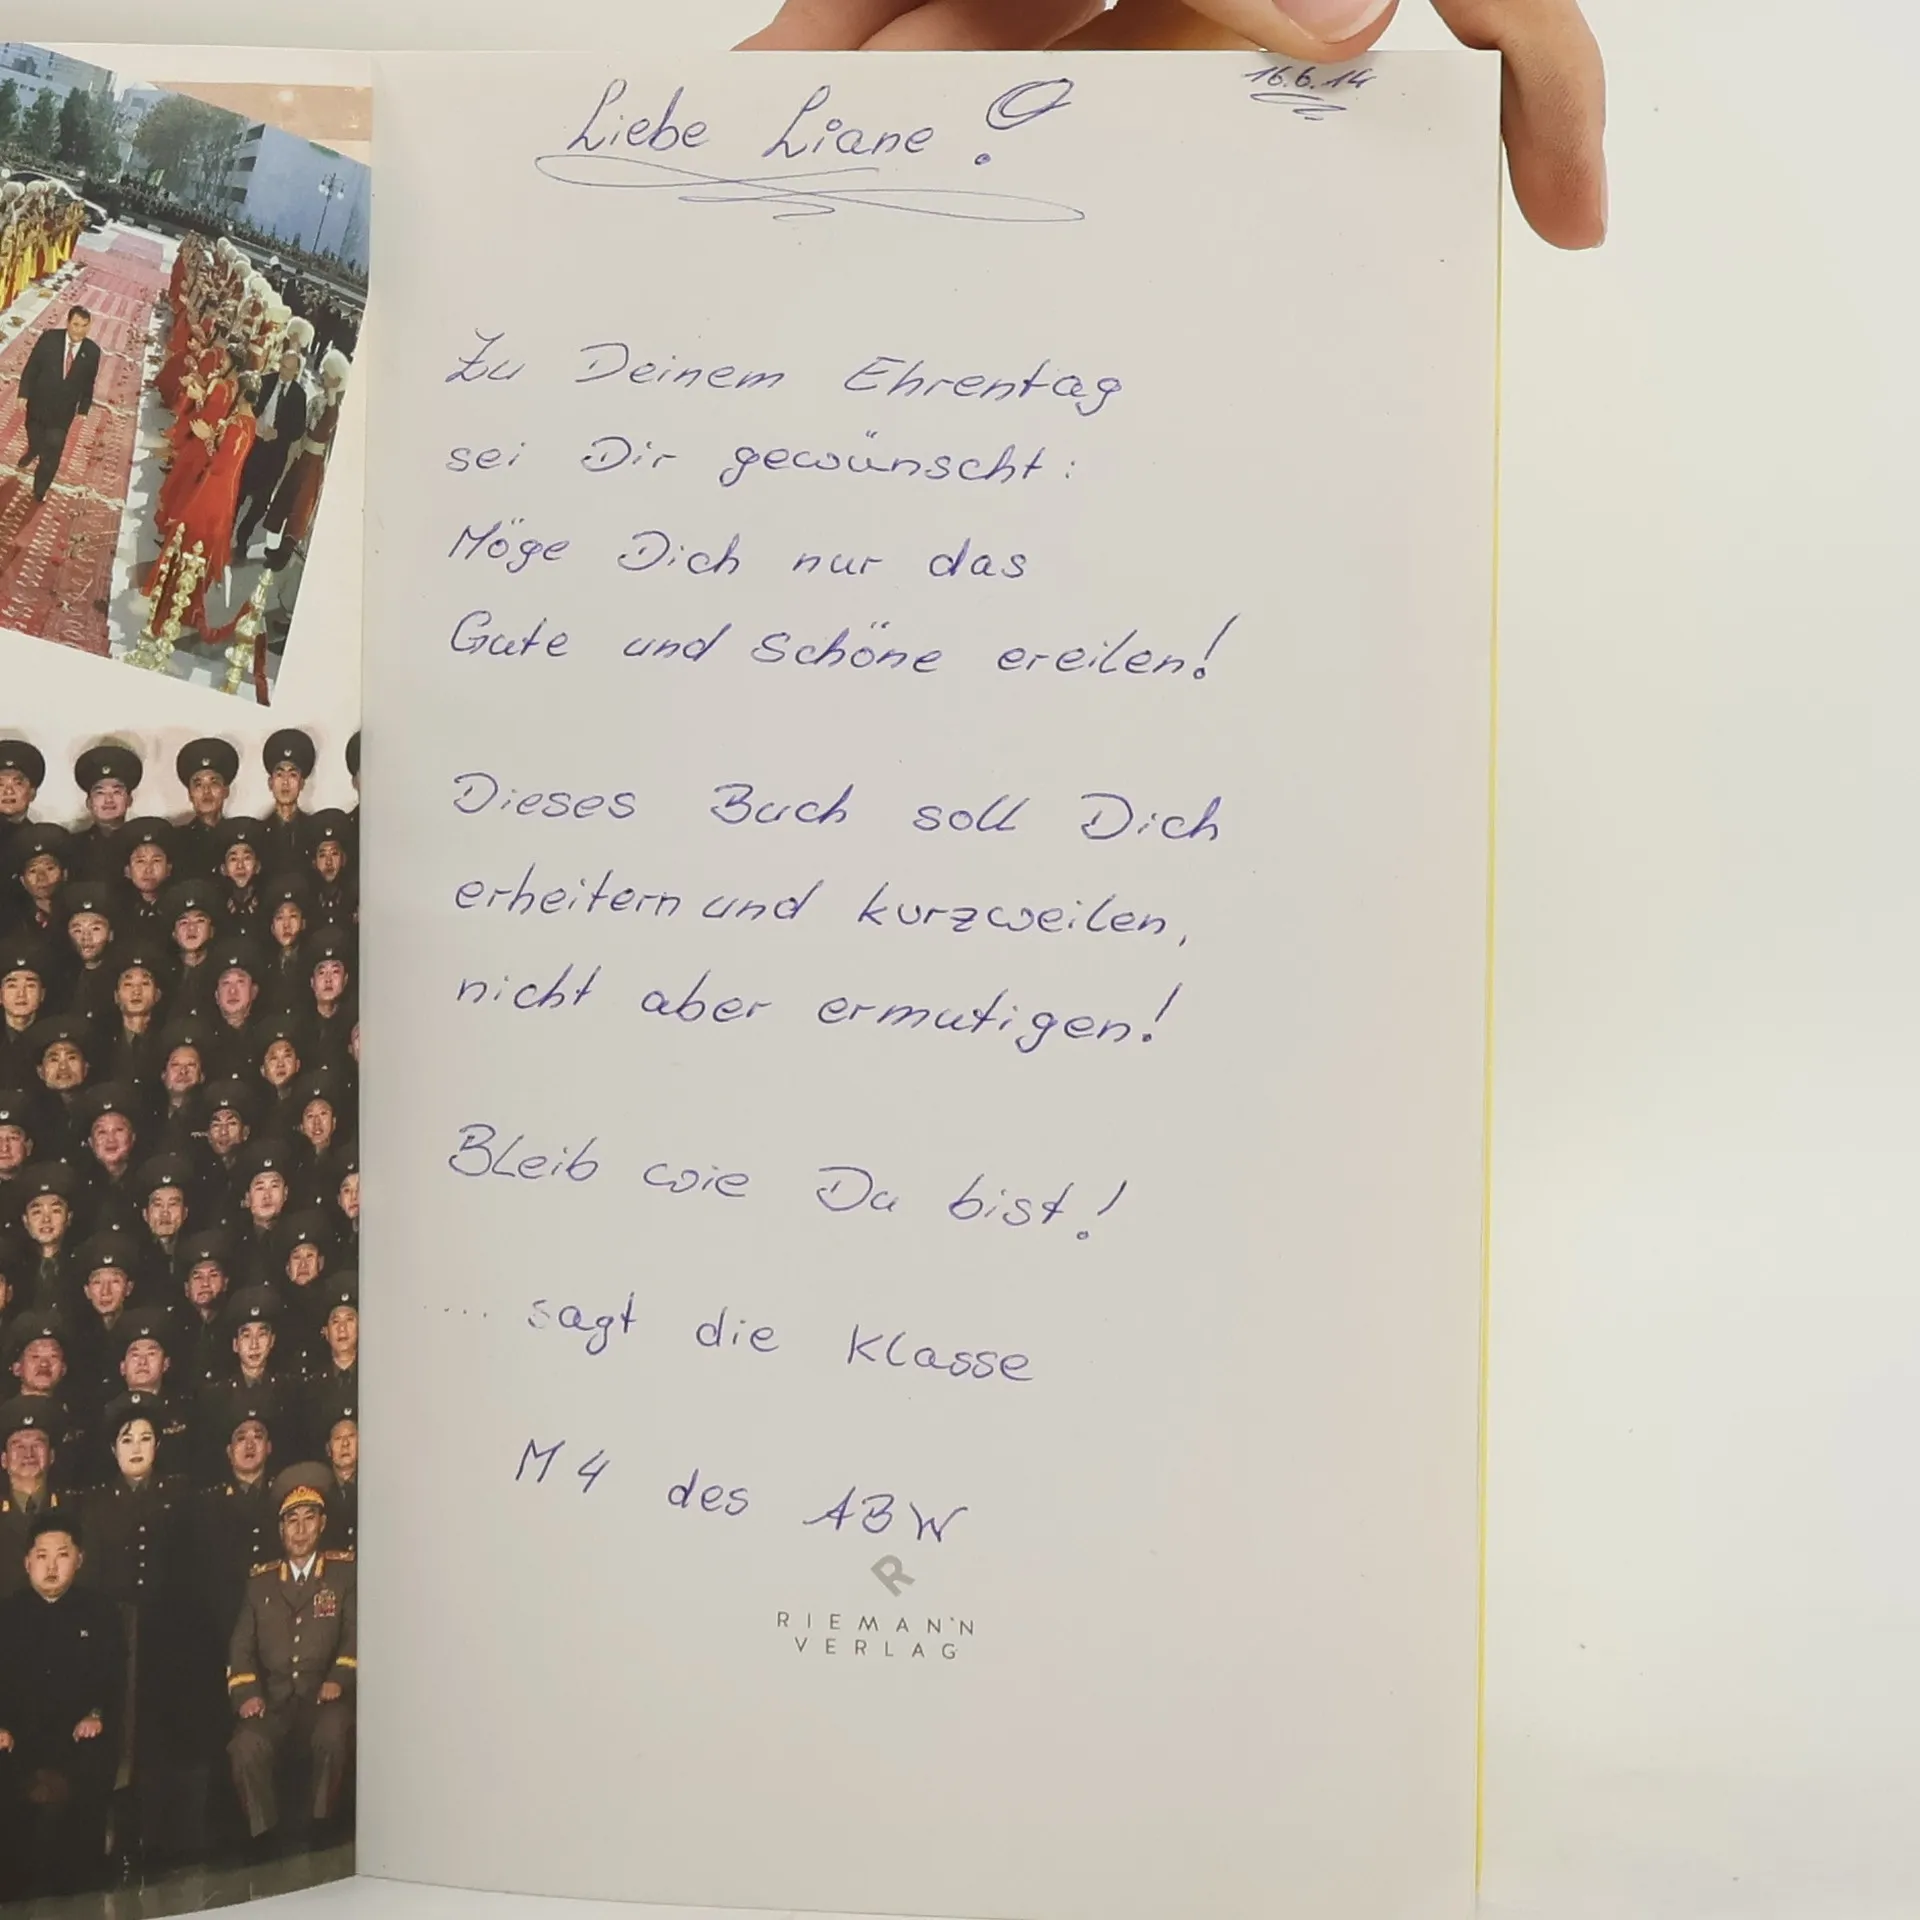 16.6.14
Liebe Liane!
Zu Deinem Ehrentag
sei Dir gewünscht:
Möge Dich nur das
Gute und Schöne ereilen!
Dieses Buch soll Dich
erheitern und kurzweilen,
nicht aber ermutigen!
Bleib wie Du bist!
.... sagt die Klasse
M4 des ABW
R
RIEMANN
VERLAG